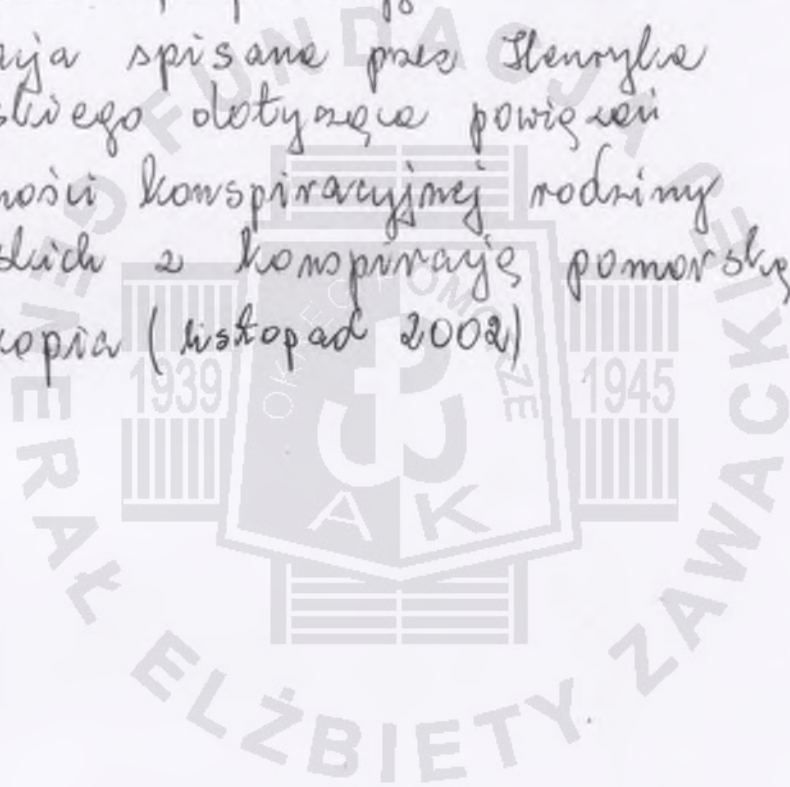 acja spisana przez Henryka
skiego dotycząca powiązań
ności konspiracyjnej rodziny
skich z konspiracją pomorską
kopia (listopad 2002)
FUNDACJA GENERAŁ ELŻBIETY ZAWACKIEJ
OKRĘG POMORZE
1939
1945
A K